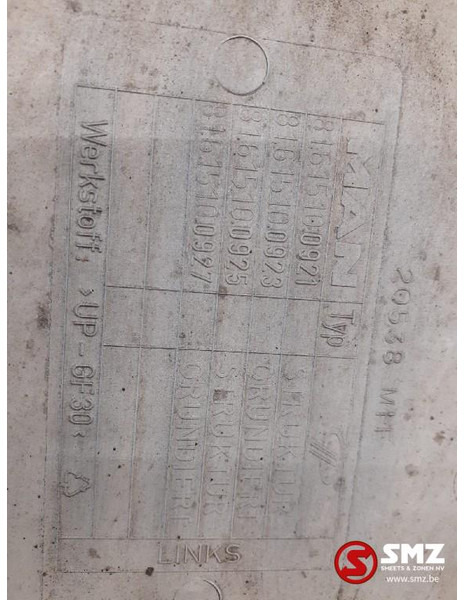 20538 MPI
MAN Typ
81.61510.0921 STRUKTUR
81.61510.0923 GRUNDIERT
81.61510.0925 STRUKTUR
81.61510.0927 GRUNDIERT
Werkstoff: >UP-GF30<
LINKS
SMZ
SMEETS & ZONEN NV
www.smz.be